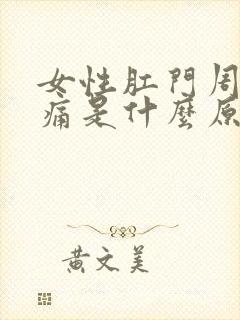 女性肛門周
痛是什麼原
黃文美